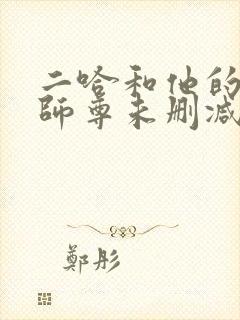 二哈和他的
師尊未删减
鄭彤